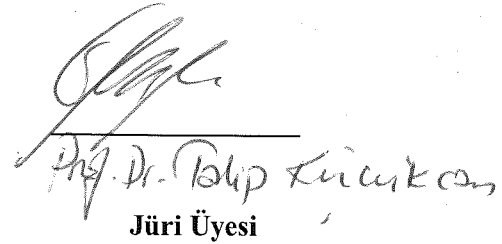 Prof. Dr. Talip Küçükcan
Jüri Üyesi